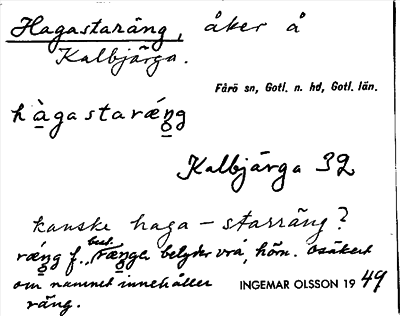 Hagastaräng, åker å
Kalbjärga.
Fårö sn, Gotl. n. hd, Gotl. län.
hàgastarǽng
Kalbjärga 32
kanske haga – starräng?
rǽng f., best. rænge betyder vrå, hörn. Osäkert
om namnet innehåller
räng.
INGEMAR OLSSON 19 49